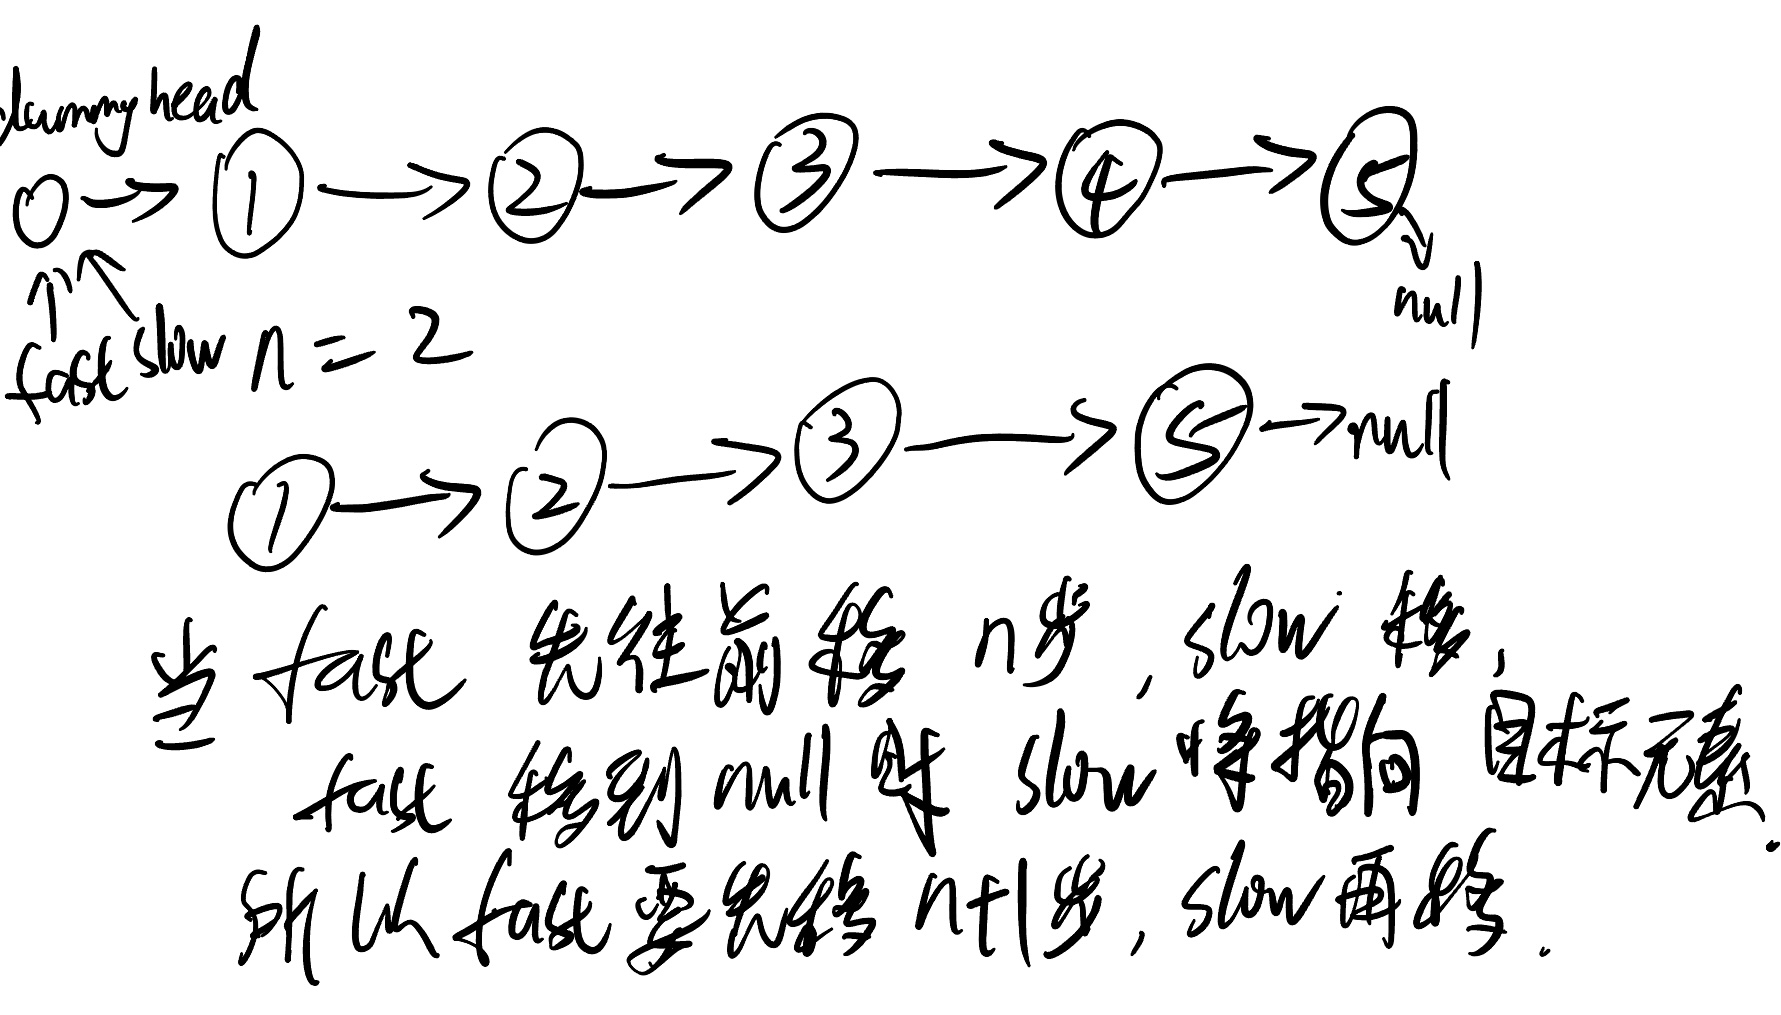 dummy head
1 2 3 4 5
null
fast slow n = 2
1 2 3 5 null
当 fast 先往前移 n步, slow 移,
fast 移到 null 时 slow 将指向 目标元素.
所以 fast 要先移 n+1步, slow 再移.